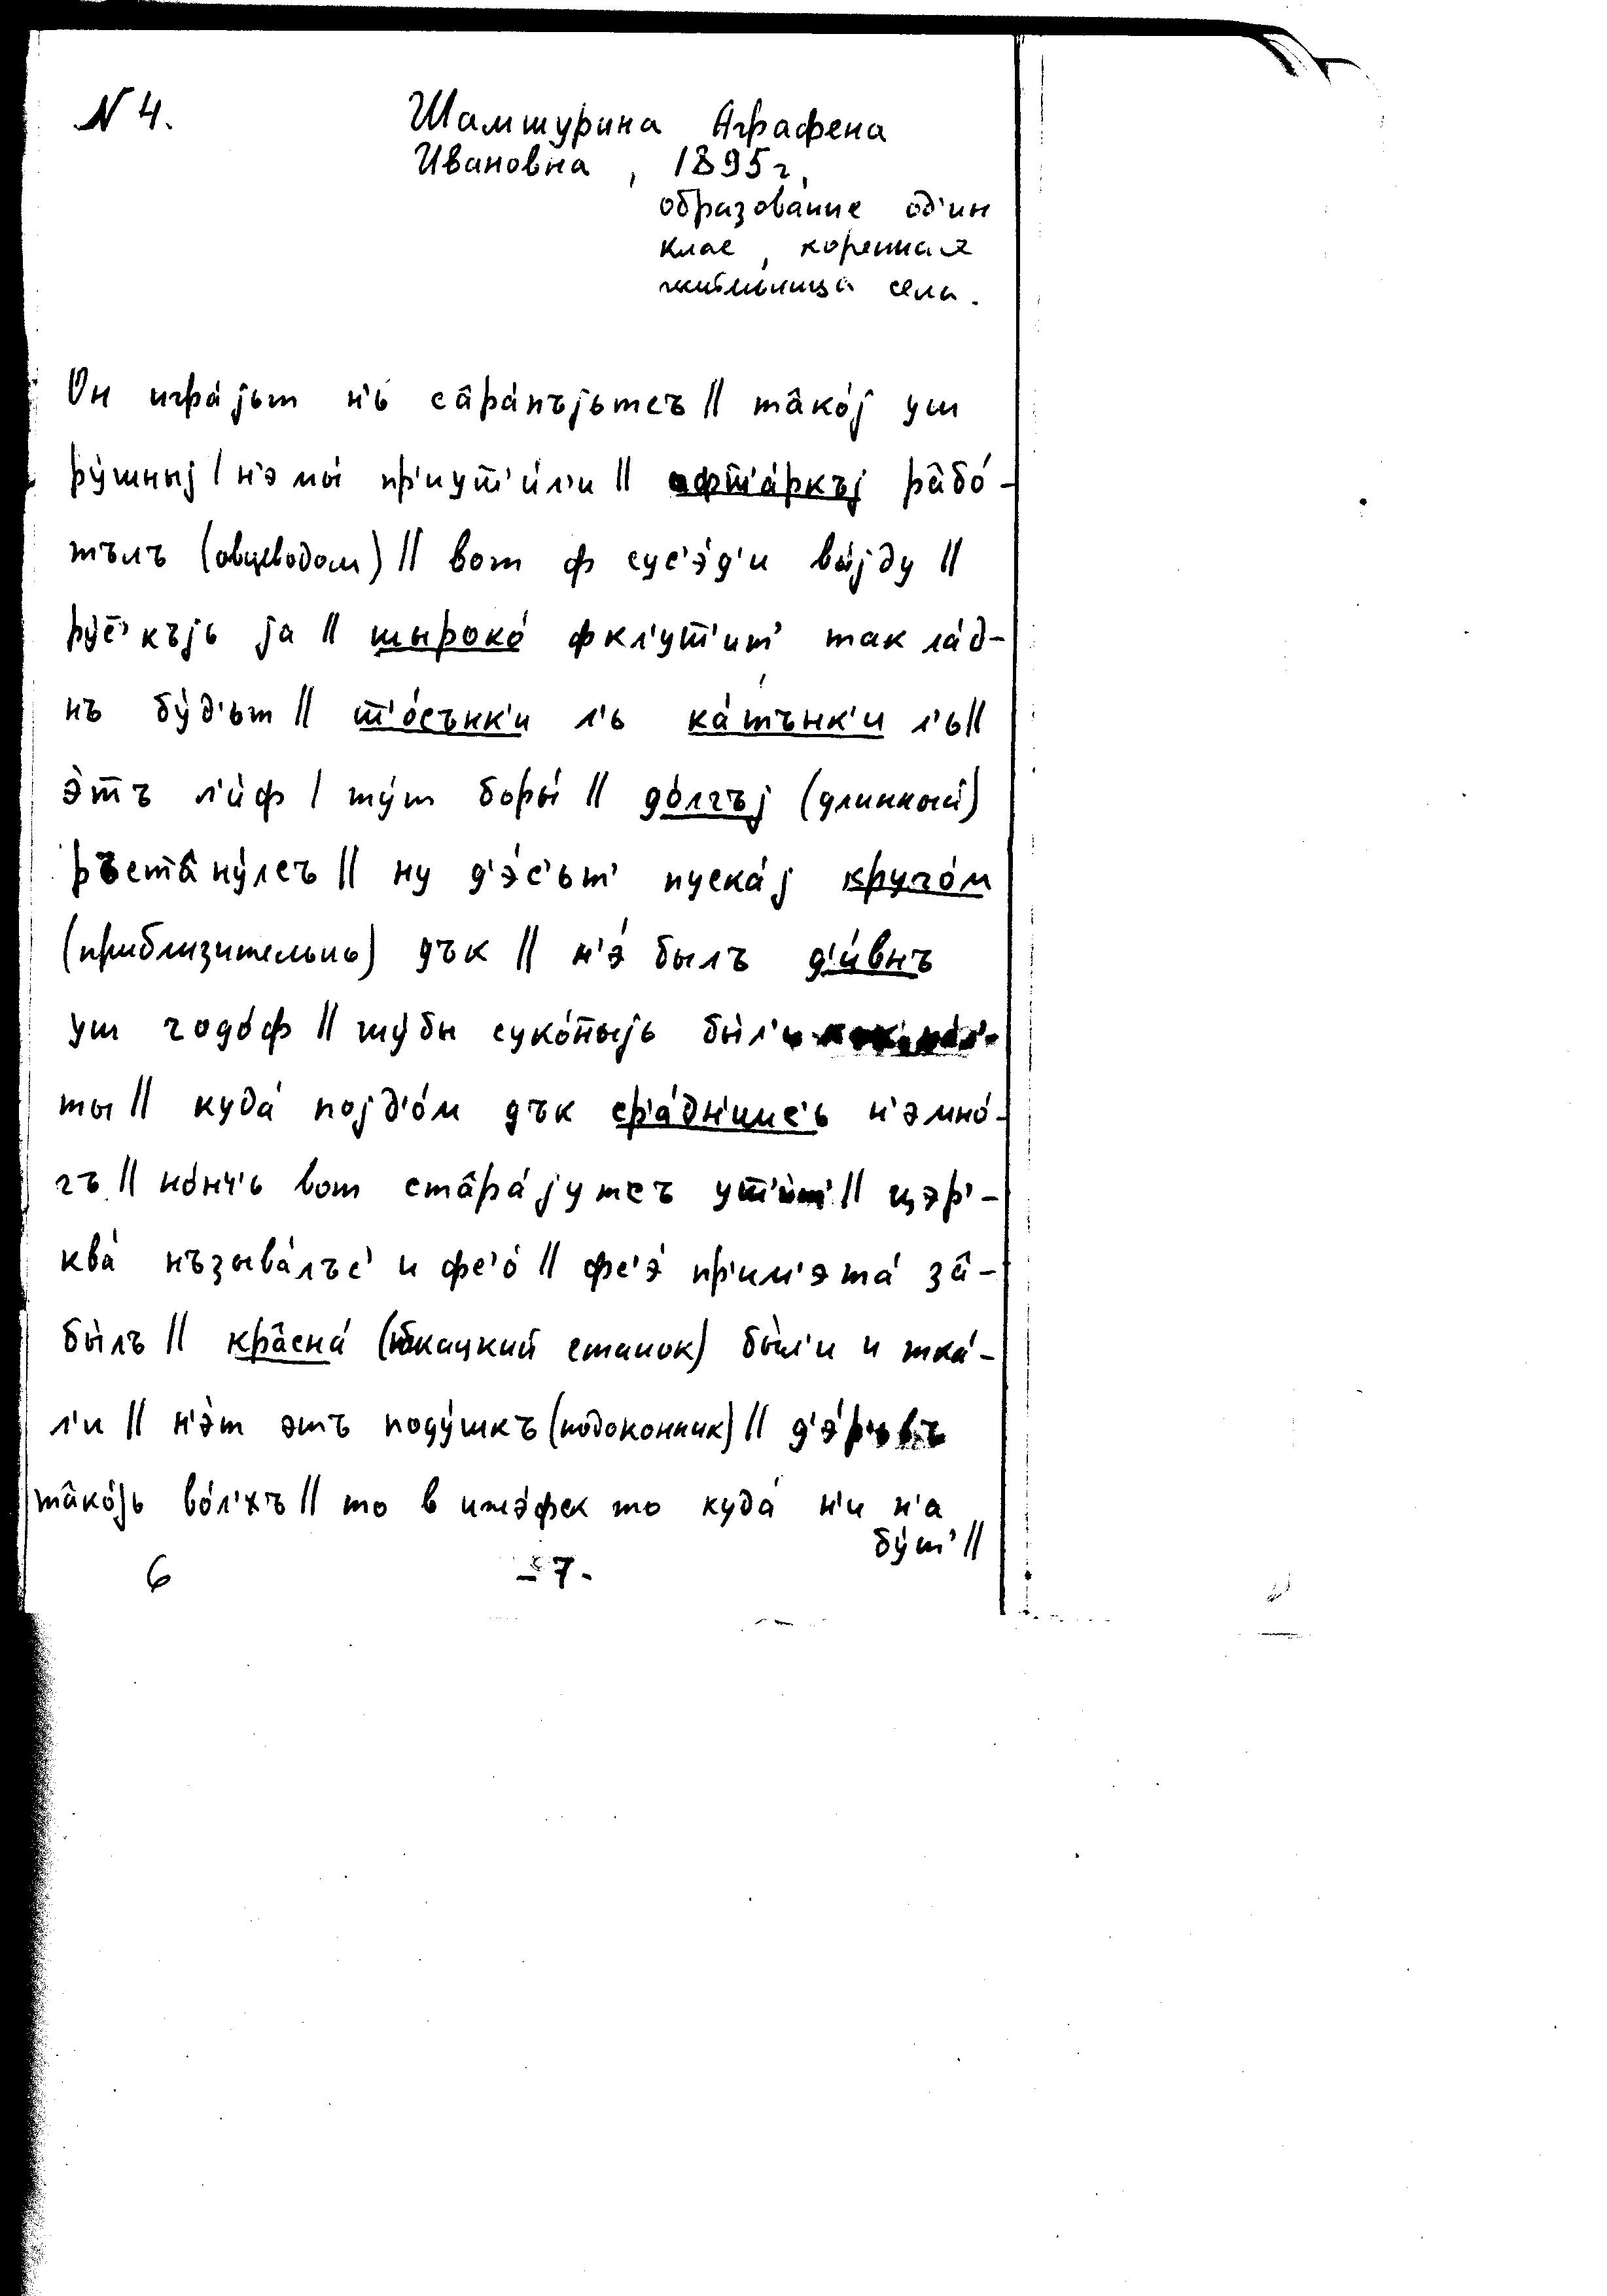 N 4.
Шамшурина Аграфена
Ивановна, 1895 г,
образова́ние од'ин
клас, коренная
жительница села.
Он игра́јьт н'ь са̂ра́пъјьтсъ || та̂ко́ј уш
ру́шныј | н'э мы́ пр'иут̅'и́л'и || афт̅'а́ркъј ра̂бо́-
тълъ (овцеводом) || вот ф сус'э́д'и вы́јду ||
ру́с̅'къјь ја || шыроко́ фкл'ут̅'ит' так ла́д-
нъ бу́д'ьт || т̅'о́сънк'и л'ь ка́тънк'и л'ь ||
э́т̅ъ л'и́ф | ту́т боры́ || до́лгъј (длинный)
ръста̂ну́лсъ || ну д'э́с'ьт' пуска́ј кругóм
(приблизительно) дък || н'э́ былъ д'и́внъ
уш годо́ф || шу́бы суко́н̅ыјь бы́л'и
ты || куда́ појд'о́м дък ср'а́дн'имс'ь н'эмно́-
гъ || но́нч'ь вот ста̂ра́јутсъ ут̅'и́т' || цэр'-
ква́ нъзыва́лъс' и фс'о́ || фс'э́ пр'им'эта́ за̂-
бы́лъ || кра̂сна́ (ткацкий станок) бы́л'и и тка́-
л'и || н'э́т этъ поду́шкъ (подоконник) || д'э́р'ьвъ
та̂ко́јь во́л'хъ || то в ижэ́фск то куда́ н'и н'а
бу́т' ||
6
- 7 -